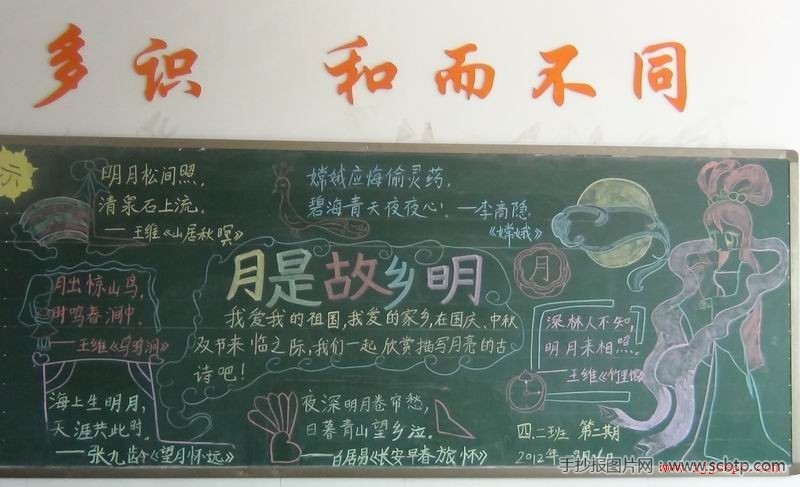 多识 和而不同
示
明月松间照,
清泉石上流.
——王维《山居秋暝》
嫦娥应悔偷灵药,
碧海青天夜夜心.——李商隐
《嫦娥》
月是故乡明
月
我爱我的祖国,我爱的家乡,在国庆、中秋
双节来临之际,我们一起欣赏描写月亮的古
诗吧!
月出惊山鸟,
时鸣春涧中.
——王维《鸟鸣涧》
深林人不知,
明月来相照.
——王维《竹里馆》
海上生明月,
天涯共此时.
——张九龄《望月怀远》
夜深明月卷帘愁,
日暮青山望乡泣.
——白居易《长安早春旅怀》
四.二班 第二期
2012年
手抄报图片网 www.scbtp.com